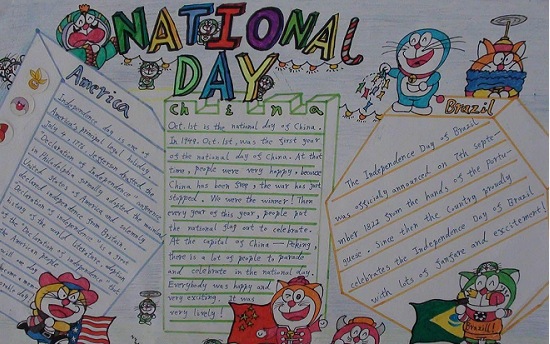 NATIONAL
DAY
America
Independence day is one of
America's principal legal holiday.
July 4, 1776. Jefferson drafted the
Declaration of Independence
in Philadelphia formally adopted the
United States of America and solemnly
declared independence from Britain.
Declaration of Independence is a great
history of the world
the Declaration of Independence
China
Oct. 1st is the national day of China.
In 1949. Oct. 1st, was the first year
of the national day of China. At that
time, people were very happy, because
China has been free, the war has just
stopped. We were the winners! Then
every year of this year, people put
the national flag out to celebrate.
At the capital of China — Peking,
there is a lot of people to parade
and celebrate in the national day.
Everybody was happy and
very exciting. It was
very lively!
Brazil
The Independence Day of Brazil
was officially announced on 7th septe-
mber 1822 from the hands of the Portu-
guese. Since then the Country proudly
celebrates the Independence Day of Brazil
with lots of fanfare and excitement!
Brazil!